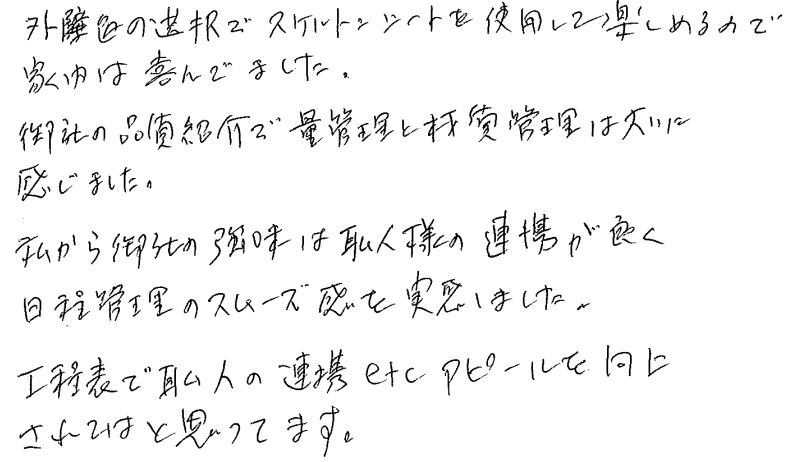 外壁色の選択でスケルトンシートを使用して楽しめるので
家内は喜んでました。
御社の品質紹介で量管理と材質管理は大いに
感じました。
私から御社の強味は職人様の連携が良く
日程管理のスムーズ感を実感しました。
工程表で職人の連携etcアピールを
されてはと思ってます。